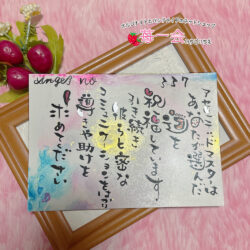 苺一会
angel no
557
アセンデッドマスターは
あなたが選んだ
道を
祝福しています。
引き続き
彼らと密な
コミュニケーションをはかり
導きや助けを
求めてください